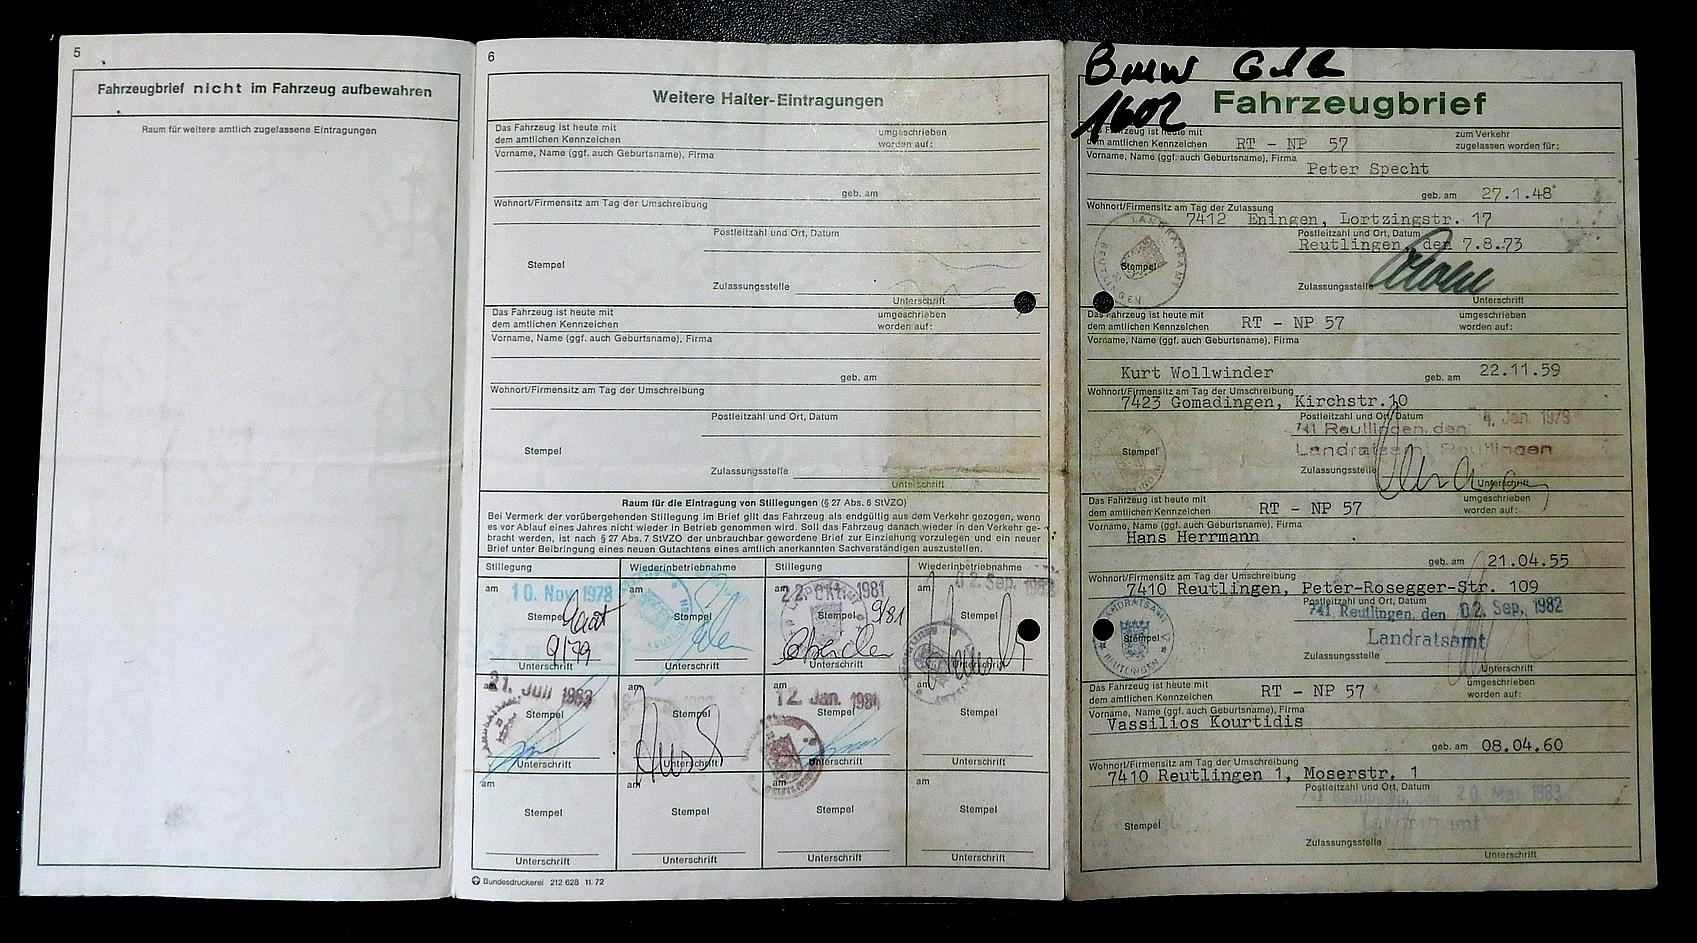 5
Fahrzeugbrief nicht im Fahrzeug aufbewahren
Raum für weitere amtlich zugelassene Eintragungen
6
Weitere Halter-Eintragungen
Das Fahrzeug ist heute mit
dem amtlichen Kennzeichen
umgeschrieben
worden auf:
Vorname, Name (ggf. auch Geburtsname), Firma
geb. am
Wohnort/Firmensitz am Tag der Umschreibung
Postleitzahl und Ort, Datum
Stempel
Zulassungsstelle
Unterschrift
Das Fahrzeug ist heute mit
dem amtlichen Kennzeichen
umgeschrieben
worden auf:
Vorname, Name (ggf. auch Geburtsname), Firma
geb. am
Wohnort/Firmensitz am Tag der Umschreibung
Postleitzahl und Ort, Datum
Stempel
Zulassungsstelle
Unterschrift
Raum für die Eintragung von Stillegungen (§ 27 Abs. 6 StVZO)
Bei Vermerk der vorübergehenden Stillegung im Brief gilt das Fahrzeug als endgültig aus dem Verkehr gezogen, wenn
es vor Ablauf eines Jahres nicht wieder in Betrieb genommen wird. Soll das Fahrzeug danach wieder in den Verkehr ge-
bracht werden, ist nach § 27 Abs. 7 StVZO der unbrauchbar gewordene Brief zur Einziehung vorzulegen und ein neuer
Brief unter Beibringung eines neuen Gutachtens eines amtlich anerkannten Sachverständigen auszustellen.
Stillegung Wiederinbetriebnahme Stillegung Wiederinbetriebnahme
am 10. Nov. 1978 am 22. Okt. 1981 02. Sep.
Stempel Stempel Stempel 9/81 Stempel
9/79
Unterschrift Unterschrift Unterschrift Unterschrift
21. Juli am am 12. Jan. am
Stempel Stempel Stempel Stempel
Unterschrift Unterschrift Unterschrift Unterschrift
am am am am
Stempel Stempel Stempel Stempel
Unterschrift Unterschrift Unterschrift Unterschrift
Bundesdruckerei 212 628 11.72
BMW
1602
Fahrzeugbrief
Das Fahrzeug ist heute mit
dem amtlichen Kennzeichen RT - NP 57
zum Verkehr
zugelassen worden für:
Vorname, Name (ggf. auch Geburtsname), Firma
Peter Specht
geb. am 27.1.48
Wohnort/Firmensitz am Tag der Zulassung
7412 Eningen, Lortzingstr. 17
Postleitzahl und Ort, Datum
Reutlingen, den 7.8.73
LANDRATSAMT REUTLINGEN
Stempel
Zulassungsstelle
Unterschrift
Das Fahrzeug ist heute mit
dem amtlichen Kennzeichen RT - NP 57
umgeschrieben
worden auf:
Vorname, Name (ggf. auch Geburtsname), Firma
Kurt Wollwinder geb. am 22.11.59
Wohnort/Firmensitz am Tag der Umschreibung
7423 Gomadingen, Kirchstr.10
Postleitzahl und Ort, Datum
741 Reutlingen, den 4. Jan. 1979
Landratsamt Reutlingen
Stempel
Zulassungsstelle
Unterschrift
Das Fahrzeug ist heute mit
dem amtlichen Kennzeichen RT - NP 57
umgeschrieben
worden auf:
Vorname, Name (ggf. auch Geburtsname), Firma
Hans Herrmann
geb. am 21.04.55
Wohnort/Firmensitz am Tag der Umschreibung
7410 Reutlingen, Peter-Rosegger-Str. 109
Postleitzahl und Ort, Datum
741 Reutlingen, den 02. Sep. 1982
Landratsamt
LANDRATSAMT REUTLINGEN
Stempel
Zulassungsstelle
Unterschrift
Das Fahrzeug ist heute mit
dem amtlichen Kennzeichen RT - NP 57
umgeschrieben
worden auf:
Vorname, Name (ggf. auch Geburtsname), Firma
Vassilios Kourtidis
geb. am 08.04.60
Wohnort/Firmensitz am Tag der Umschreibung
7410 Reutlingen 1, Moserstr. 1
Postleitzahl und Ort, Datum
741 Reutlingen, den 20. Mai 1983
Landratsamt
Stempel
Zulassungsstelle
Unterschrift